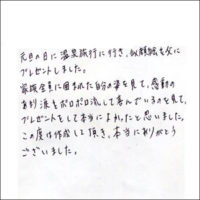 元旦の日に温泉旅行に行き、似顔絵を父に
プレゼントしました。
家族全員に囲まれた自分の姿を見て、感動の
あまり涙をポロポロ流して喜んでいるのを見て、
プレゼントをして本当によかったと思いました。
この度は作成して頂き、本当にありがとう
ございました。